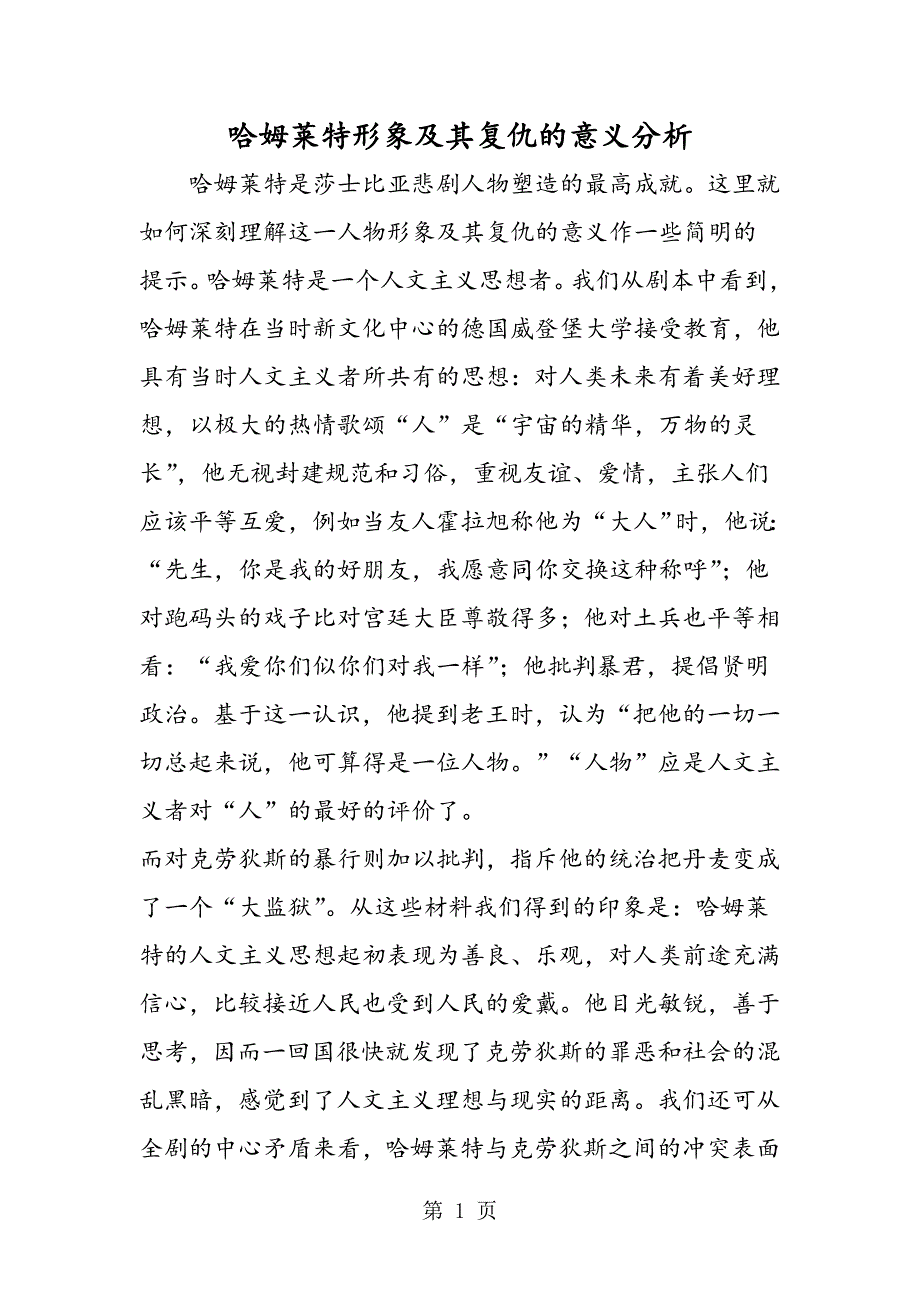 哈姆莱特形象及其复仇的意义分析
哈姆莱特是莎士比亚悲剧人物塑造的最高成就。这里就
如何深刻理解这一人物形象及其复仇的意义作一些简明的
提示。哈姆莱特是一个人文主义思想者。我们从剧本中看到，
哈姆莱特在当时新文化中心的德国威登堡大学接受教育，他
具有当时人文主义者所共有的思想：对人类未来有着美好理
想，以极大的热情歌颂“人”是“宇宙的精华，万物的灵
长”，他无视封建规范和习俗，重视友谊、爱情，主张人们
应该平等互爱，例如当友人霍拉旭称他为“大人”时，他说：
“先生，你是我的好朋友，我愿意同你交换这种称呼”；他
对跑码头的戏子比对宫廷大臣尊敬得多；他对士兵也平等相
看：“我爱你们似你们对我一样”；他批判暴君，提倡贤明
政治。基于这一认识，他提到老王时，认为“把他的一切一
切总起来说，他可算得是一位人物。”“人物”应是人文主
义者对“人”的最好的评价了。
而对克劳狄斯的暴行则加以批判，指斥他的统治把丹麦变成
了一个“大监狱”。从这些材料我们得到的印象是：哈姆莱
特的人文主义思想起初表现为善良、乐观，对人类前途充满
信心，比较接近人民也受到人民的爱戴。他目光敏锐，善于
思考，因而一回国很快就发现了克劳狄斯的罪恶和社会的混
乱黑暗，感觉到了人文主义理想与现实的距离。我们还可从
全剧的中心矛盾来看，哈姆莱特与克劳狄斯之间的冲突表面
第 1 页